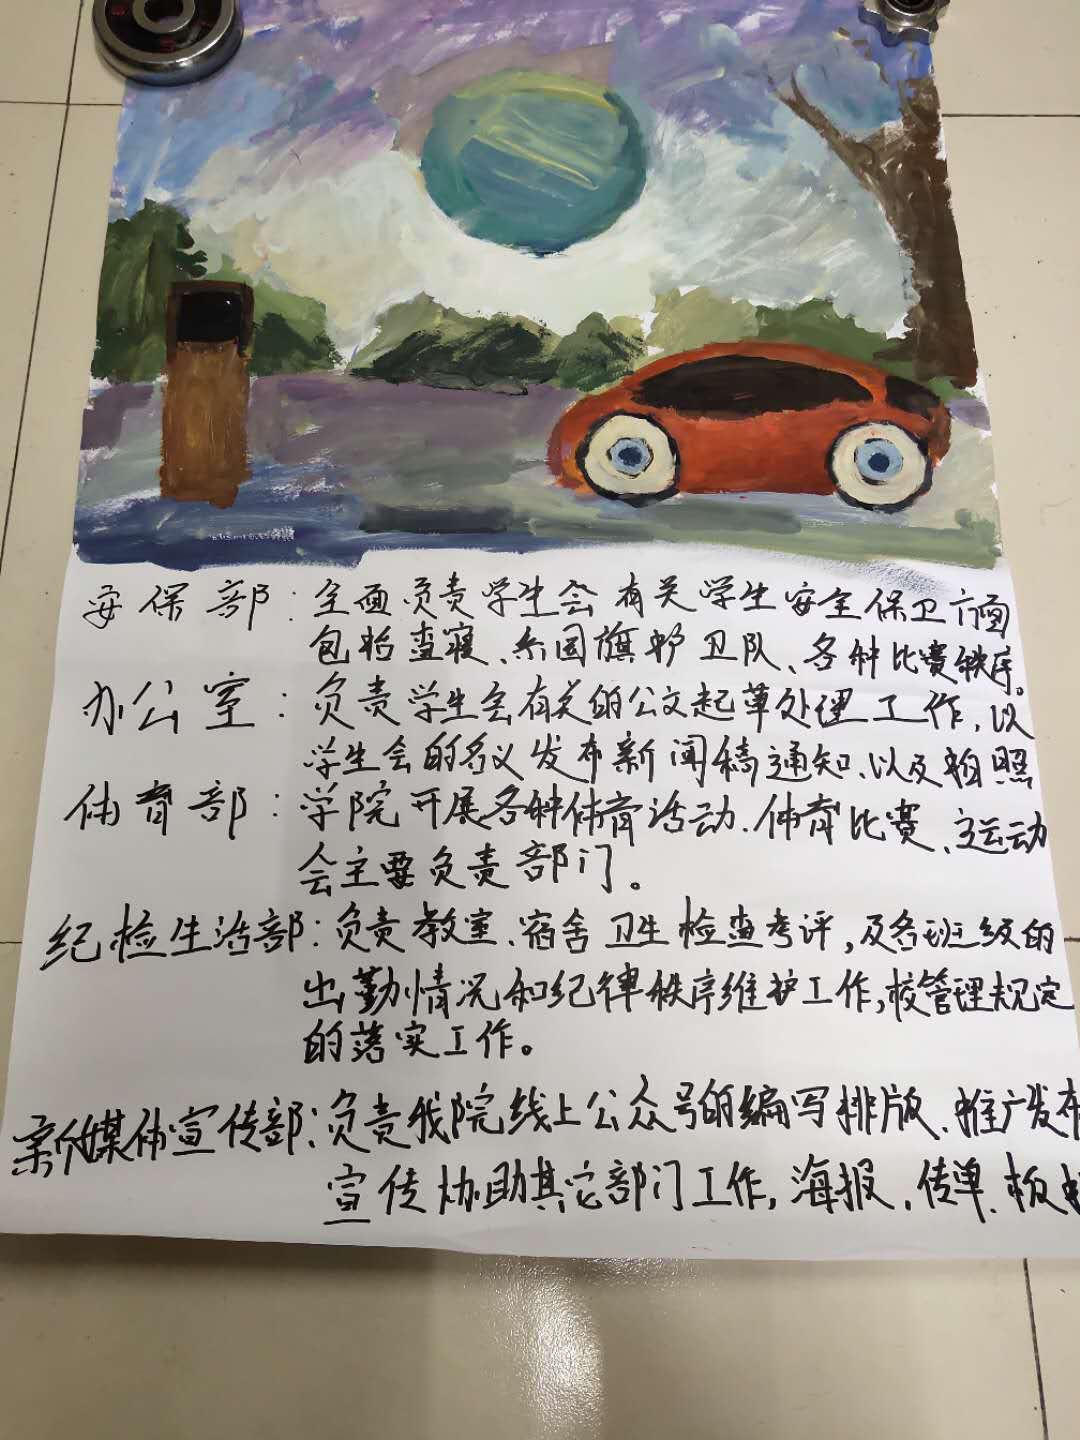 安保部：全面负责学生会有关学生安全保卫方面
包括查寝、国旗护卫队、各种比赛秩序。
办公室：负责学生会有关的公文起草处理工作，以
学生会的名义发布新闻稿通知、以及拍照
体育部：学院开展各种体育活动、体育比赛、运动
会主要负责部门。
纪检生活部：负责教室、宿舍卫生检查考评，及各班级的
出勤情况和纪律秩序维护工作，校管理规定
的落实工作。
新媒体宣传部：负责我院线上公众号的编写排版、推广发布
宣传协助其它部门工作，海报，传单、板